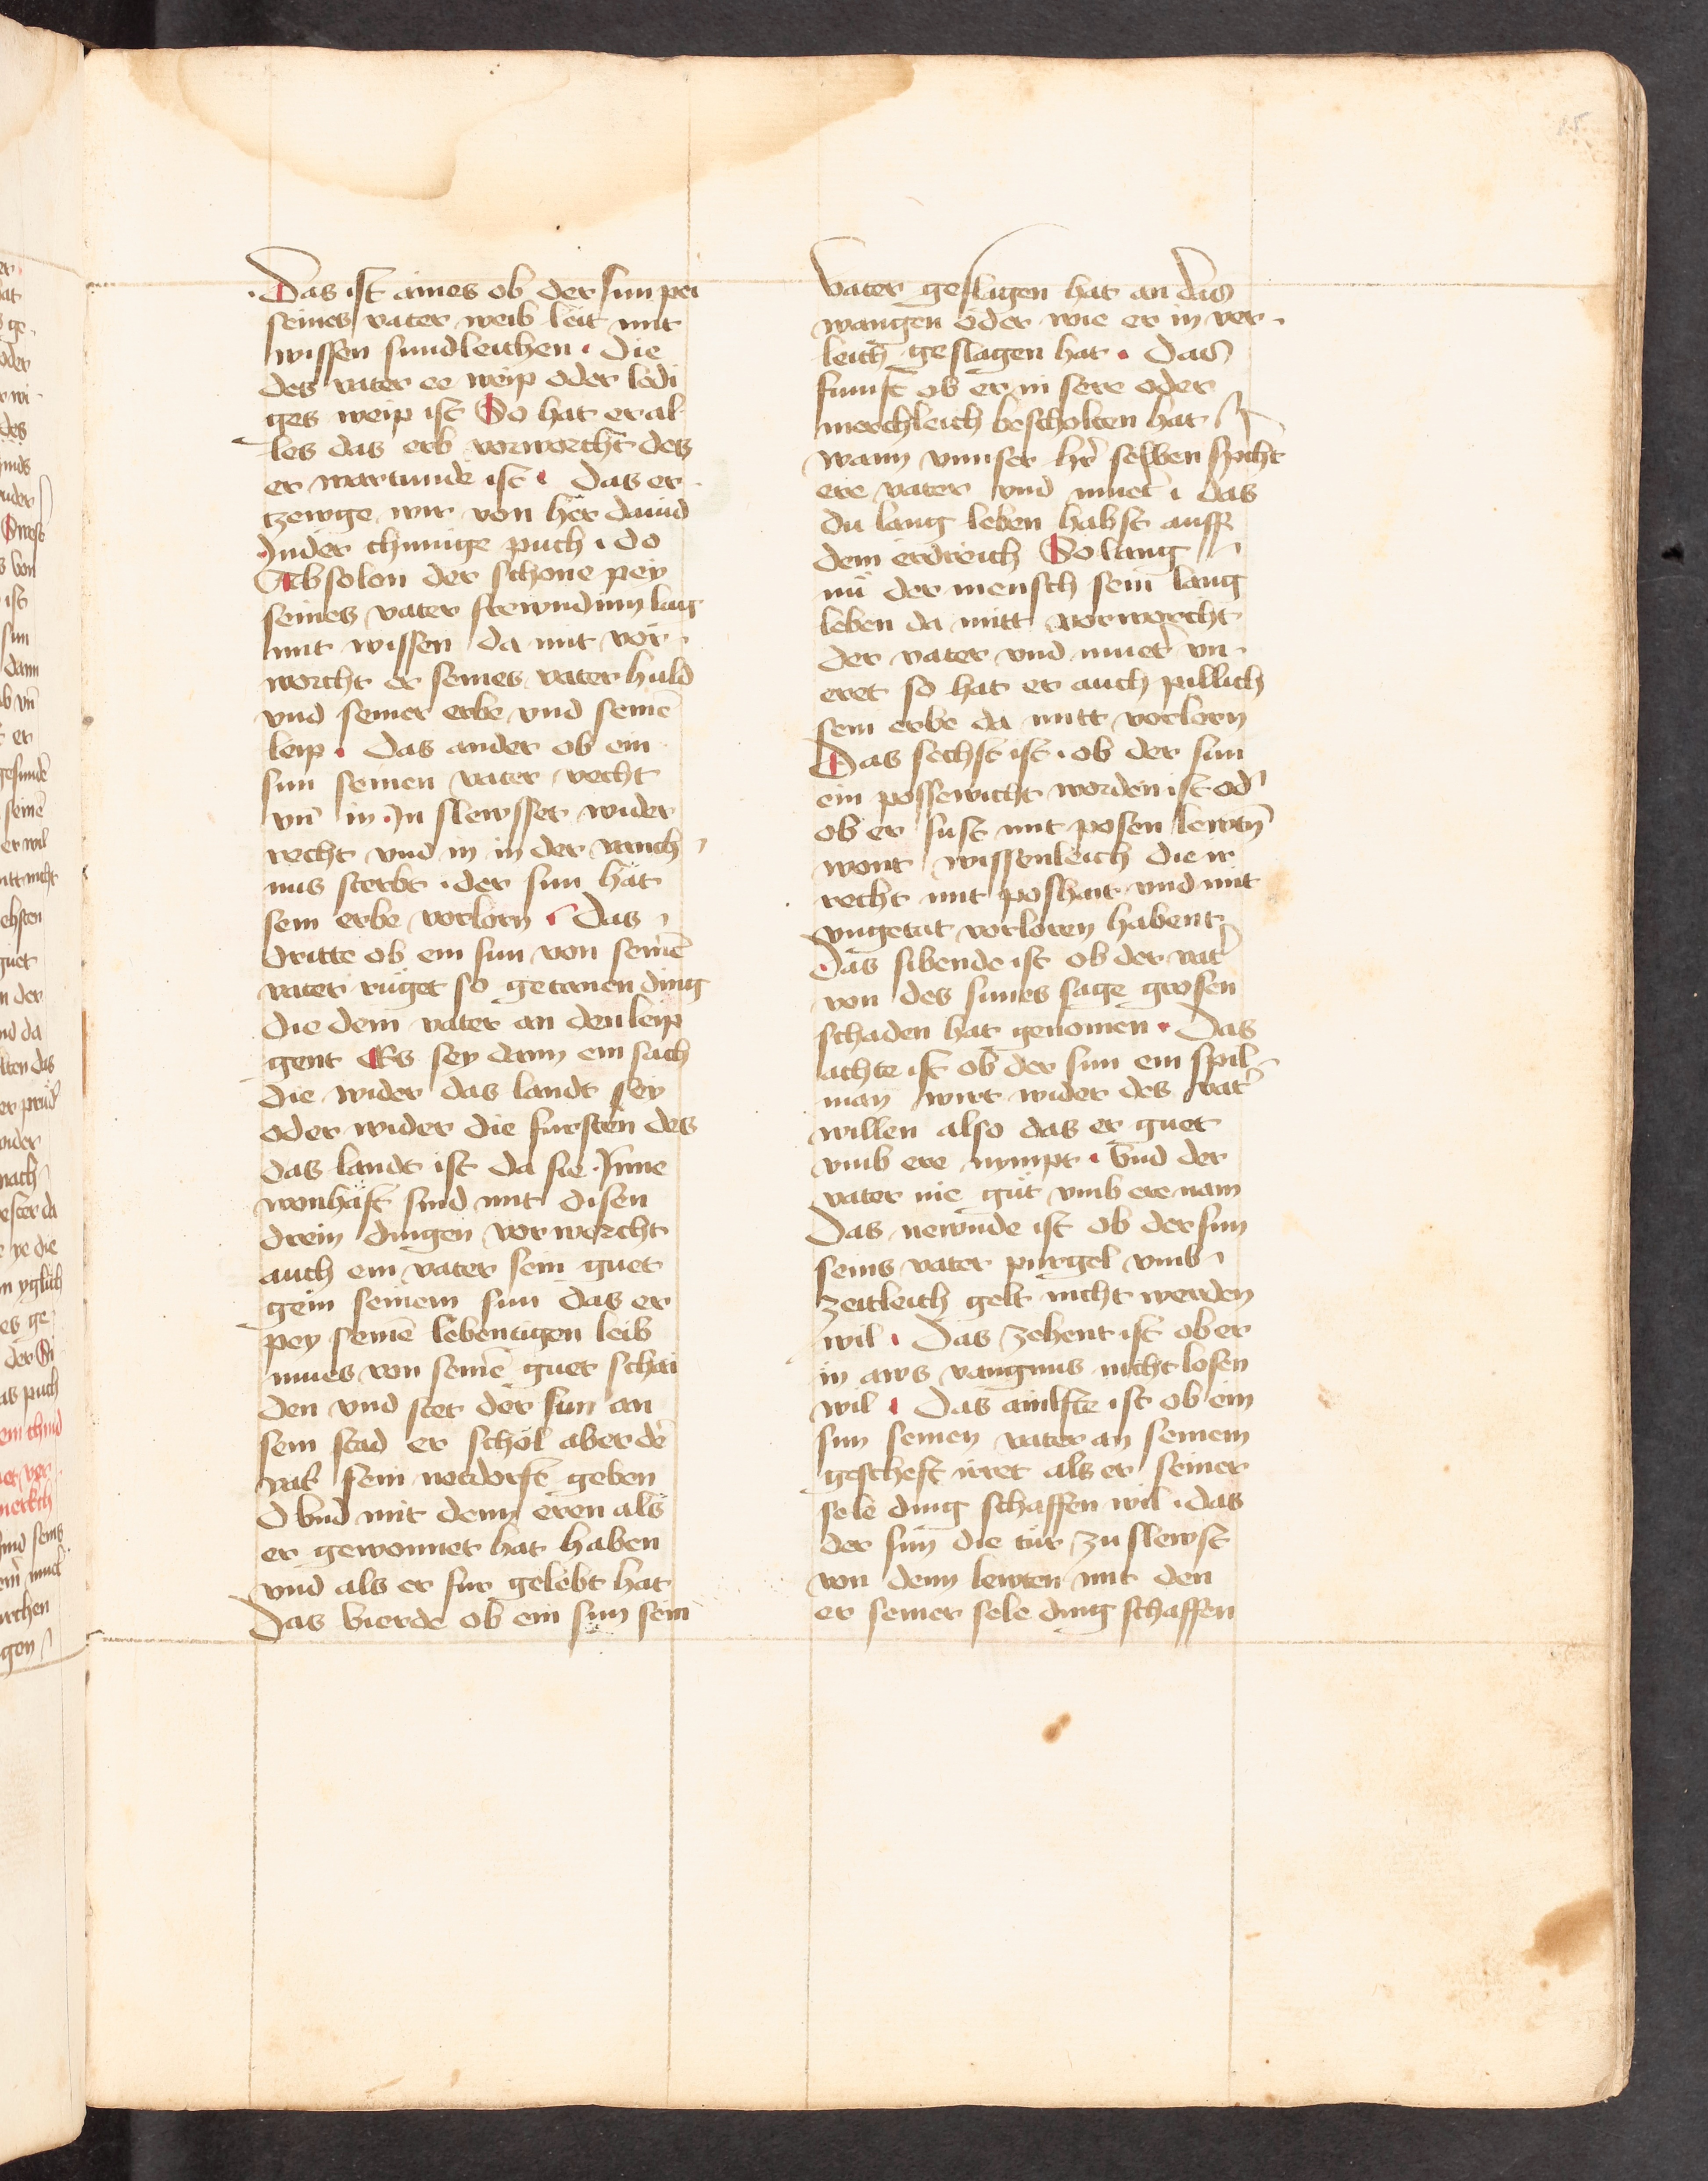 Das ist aines ob der sun pei
seines vater weib leit mit
wissen sundleichen · die
des vater ee weip oder ledi
ges weip ist So hat er al
les das erb vorworcht des
er wartunde ist · Das er
tzewge wir von her dauid
In der chunige puch · do
Absolon der schone pey
seines vater frewndinn lag
mit wissen da mit vor
worcht er seines vater huld
vnd seiner erbe vnd seinē
leip · Das ander ob ein
sun seinen vater vecht
vn̄ in In slewsset wider
recht vnd in in der vanch
nus sterbt · der sun hat
sein erbe vorlorn · Das
dritte ob ein sun von seinē
vater ruget so getanen ding
die dem vater an den leip
gent Es sey dann ein sach
die wider das landt sey
oder wider die fursten des
das landt ist da sie Inne
wonhaft sind mit disen
drein dingen vorworcht
auch ein vater sein guet
gein seinem sun das er
pey seinē lebentigen leib
mues von seinē guet schai
den vnd stet der sun an
sein stad er schol aber dē
vat̄ sein notdorft geben
Vnd mit denn eren als
er gewonnet hat haben
vnd als er fur gelebt hat
Das vierde ob ein sun sein
vater geslagen hat an das
wangen oder wie er in ver
leich geslagen hat · Das
funft ob er in sere oder
merchleich bescholten hat
wann vnnser hr̄ selben spicht
ere vater vnd muet̄ · das
du lang leben habst auff
dem erdreich So lang
nu der mensch sein lang
leben da mitt vorworcht
der vater vnd muet̄ vn
eret so hat er auch pillich
sein erbe da mitt vorlorn
Das sechst ist · ob der sun
ein possewicht worden ist od̄
ob er sust mit posen lewtn̄
wont wissenleich die ir
recht mit poshait vnd mit
vngetat vorloren habent
Das sibende ist ob der vat̄
von des sunes sage grosen
schaden hat genomen · Das
achte ist ob der sun ein spil
man wirt wider des vat̄
willen also das er guet
vmb ere nympt · Vnd der
vater nie gut vmb ere nam
Das newnde ist ob der sun
seins vater purgel vmb
zeitleich gelt nicht werden
wil · Das zehent ist ob er
in aws vangnus nicht losen
wil · Das ainlfte ist ob ein
sun seinen vater an seinem
gescheft irret als er seiner
sele ding schaffen wil · das
der sun die tur zu slewst
von denn lewten mit den
er seiner sele ding schaffen